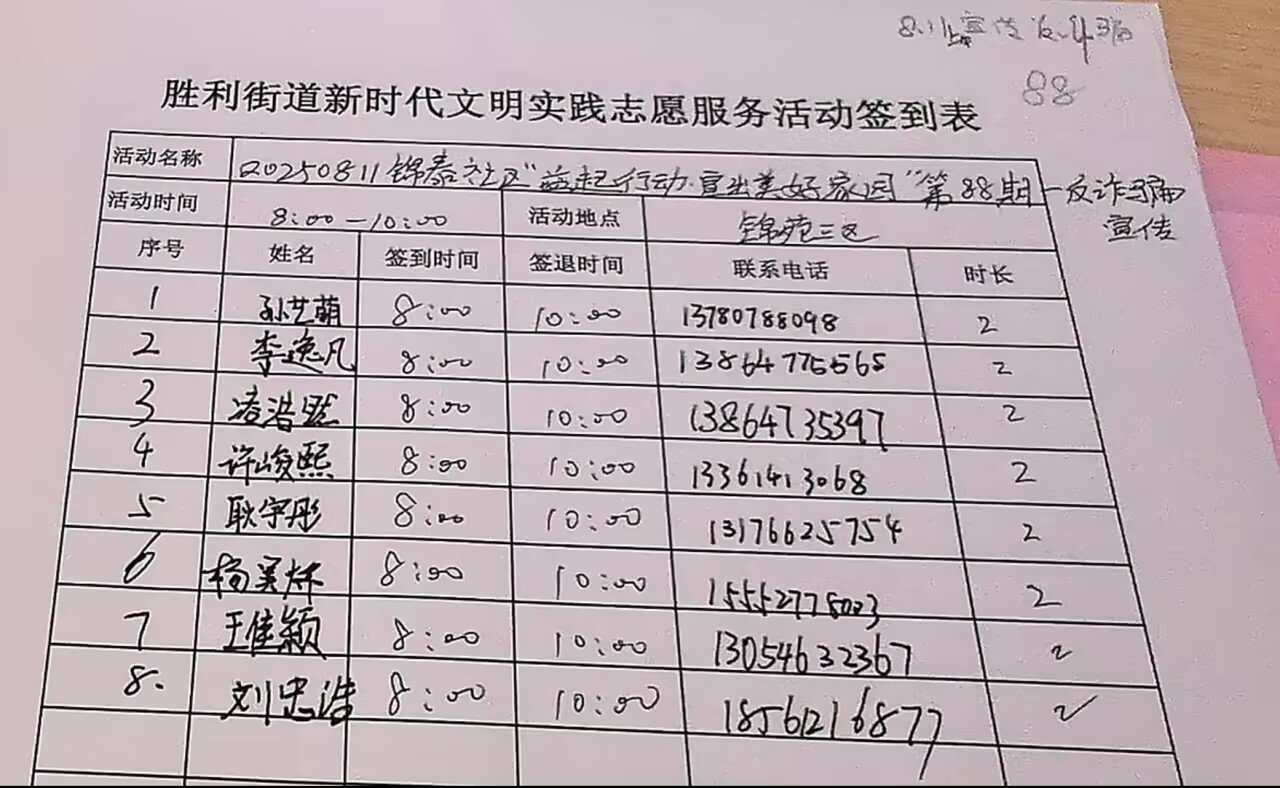 8.11 宣传反诈骗
88
胜利街道新时代文明实践志愿服务活动签到表
活动名称 20250811锦泰社区"益起行动·宜出美好家园"第88期—反诈骗宣传
活动时间 8:00-10:00 活动地点 锦苑三区
序号 姓名 签到时间 签退时间 联系电话 时长
1 孙艺萌 8:00 10:00 13780788098 2
2 李逸凡 8:00 10:00 13864775565 2
3 凌浩然 8:00 10:00 13864735397 2
4 许峻熙 8:00 10:00 13361413068 2
5 耿宇彤 8:00 10:00 13176625754 2
6 杨昊烁 8:00 10:00 15552775023 2
7 王佳颖 8:00 10:00 13054632367 2
8. 刘忠浩 8:00 10:00 18561216877 2